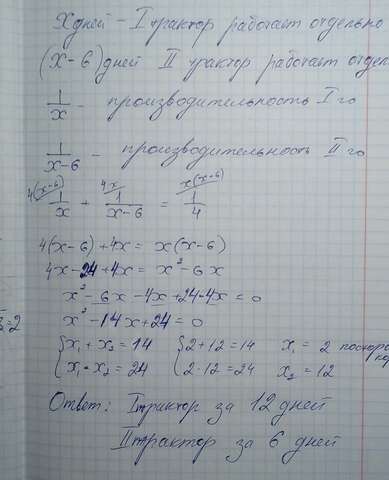 X дней – I трактор работает отдельно
(x-6) дней II трактор работает отдел
1/x – производительность I го
1/(x-6) – производительность II го
4(x-6) 4x x(x-6)
1/x + 1/(x-6) = 1/4
4(x-6)+4x = x(x-6)
4x-24+4x = x²-6x
x²-6x-4x+24-4x=0
x²-14x+24=0
{x₁+x₂=14 {2+12=14 x₁=2
{x₁·x₂=24 {2·12=24 x₂=12
Ответ: I трактор за 12 дней
II трактор за 6 дней
=2